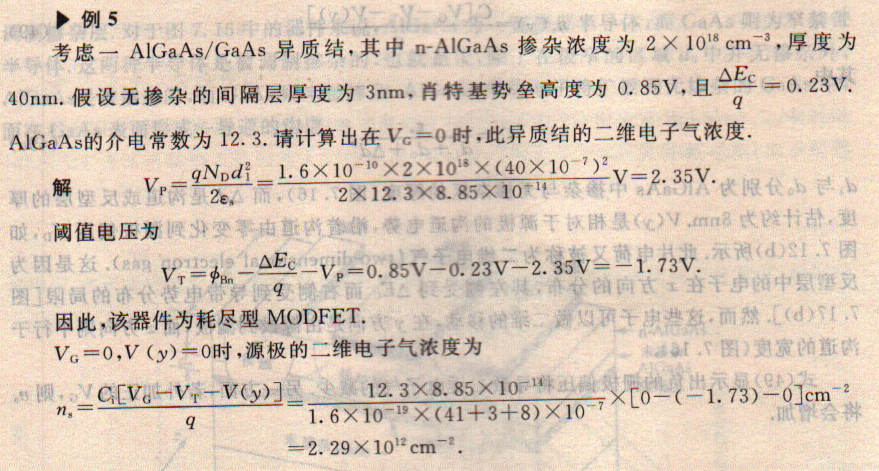 ▶ 例 5
考虑一 AlGaAs/GaAs 异质结,其中 n-AlGaAs 掺杂浓度为 2×10¹⁸ cm⁻³,厚度为
40nm. 假设无掺杂的间隔层厚度为 3nm,肖特基势垒高度为 0.85V,且 ΔE_C/q = 0.23V.
AlGaAs的介电常数为 12.3. 请计算出在 V_G=0 时,此异质结的二维电子气浓度.
解 V_P = qN_Dd₁²/2ε_s = 1.6×10⁻¹⁰×2×10¹⁸×(40×10⁻⁷)²/2×12.3×8.85×10⁻¹⁴ V=2.35V.
阈值电压为
V_T=ϕ_Bn − ΔE_C/q − V_P=0.85V−0.23V−2.35V=−1.73V.
因此,该器件为耗尽型 MODFET.
V_G=0,V(y)=0时,源极的二维电子气浓度为
n_s = C_i[V_G−V_T−V(y)]/q = 12.3×8.85×10⁻¹⁴/1.6×10⁻¹⁹×(41+3+8)×10⁻⁷ ×[0−(−1.73)−0]cm⁻²
=2.29×10¹² cm⁻².